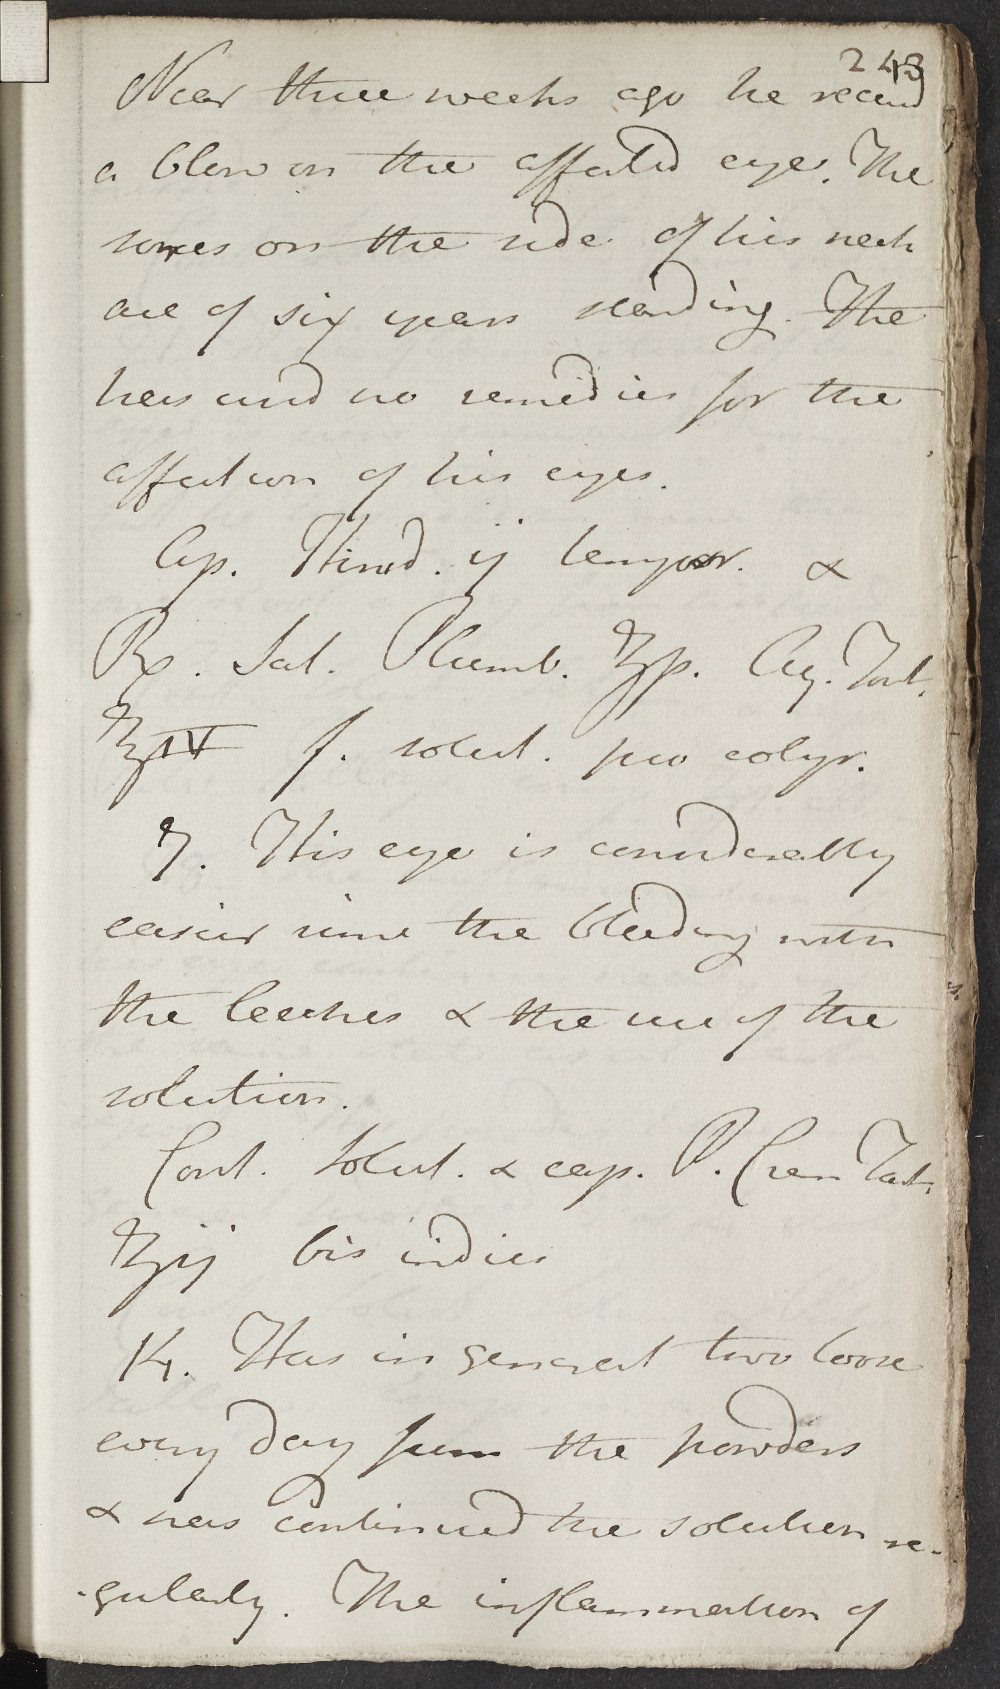 243
Near three weeks ago he receivd
a blow on the affected eye. The
sores on the side of his neck
are of six years standing. The
has used no remedies for the
affection of his eyes.
Ap. Hirud. ij tempor. &
Rx. Sal. Plumb. ʒſs. Aq. Font.
℥IV f. solut. pro colyr.
7. His eye is considerably
easier since the bleeding with
the leeches & the use of the
solution.
Cont. Solut. & cap. P. Crem Tart.
ʒij bis indies
14. Has in general two loose
every day from the powders
& has continued the solution re-
-gularly. The inflammation of